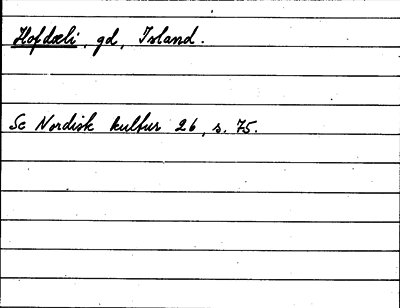 Hofdæli, gd, Island.
Se Nordisk kultur 26, s. 75.